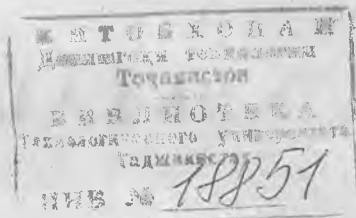 КИТОБХОНАИ
Донишгоҳи технологии
Тоҷикистон
БИБЛИОТЕКА
Технологического университета
Таджикистан
ИНВ № 18851